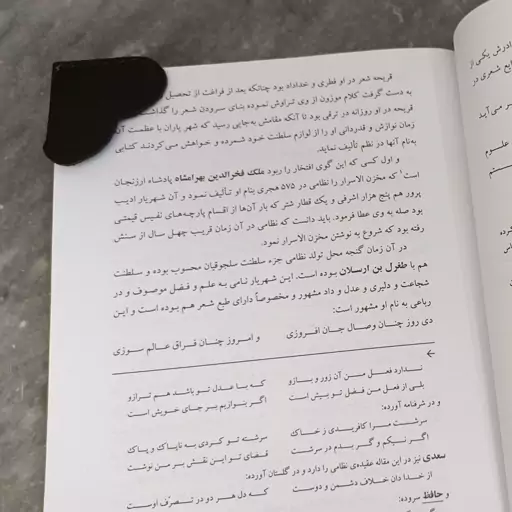 قریحه شعر در او فطری و خداداد بود چنانکه بعد از فراغت از تحصیل
به دست گرفت کلام موزون از وی تراوش نموده بنای سرودن شعر را گذاشت
قریحه در او روزانه در ترقی بود تا آنکه مقامش به‌جایی رسید که شهریاران با عظمت آن
زمان نوازش و قدردانی او را از لوازم سلطنت خود شمرده و خواهش می‌کردند کتابی
به‌نام آنها در نظم تألیف نماید.
و اول کسی که این گوی افتخار را ربود ملک فخرالدین بهرامشاه پادشاه ارزنجان
است¹ که مخزن الاسرار را نظامی در ۵۷۵ هجری بنام او تألیف نمود و آن شهریار ادیب
پرور هم پنج هزار اشرفی و یک قطار شتر که بار آن‌ها از اقسام پارچه‌های نفیس قیمتی
بود صله به وی عطا فرمود. باید دانست که نظامی در آن زمان قریب چهل سال از سنش
رفته بود که شروع به نوشتن مخزن الاسرار نمود.
در آن زمان گنجه محل تولد نظامی جزء سلطنت سلجوقیان محسوب بوده و سلطنت
هم با طغرل بن ارسلان بوده است. این شهریار نامی به علم و فضل موصوف و در
شجاعت و دلیری و عدل و داد مشهور و مخصوصاً دارای طبع شعر هم بوده است و این
رباعی به نام او مشهور است:
دی روز چنان وصال جان افروزی و امروز چنان فراق عالم سوزی
←
ندارد فعل من آن زور و بازو که با عدل تو باشد هم ترازو
بلی از فعل من فضل تو بیش است اگر بنوازیم بر جای خویش است
و در شرفنامه آورده:
سرشت مرا کافریدی ز خاک سرشته تو کردی به ناپاک و پاک
اگر نیکم و گر بدم در سرشت قضای تو این نقش بر من نوشت
سعدی نیز در این مقاله عقیده‌ی نظامی را دارد و در گلستان آورده:
از خدا دان خلاف دشمن و دوست که دل هر دو در تصرّف اوست
و حافظ سروده: